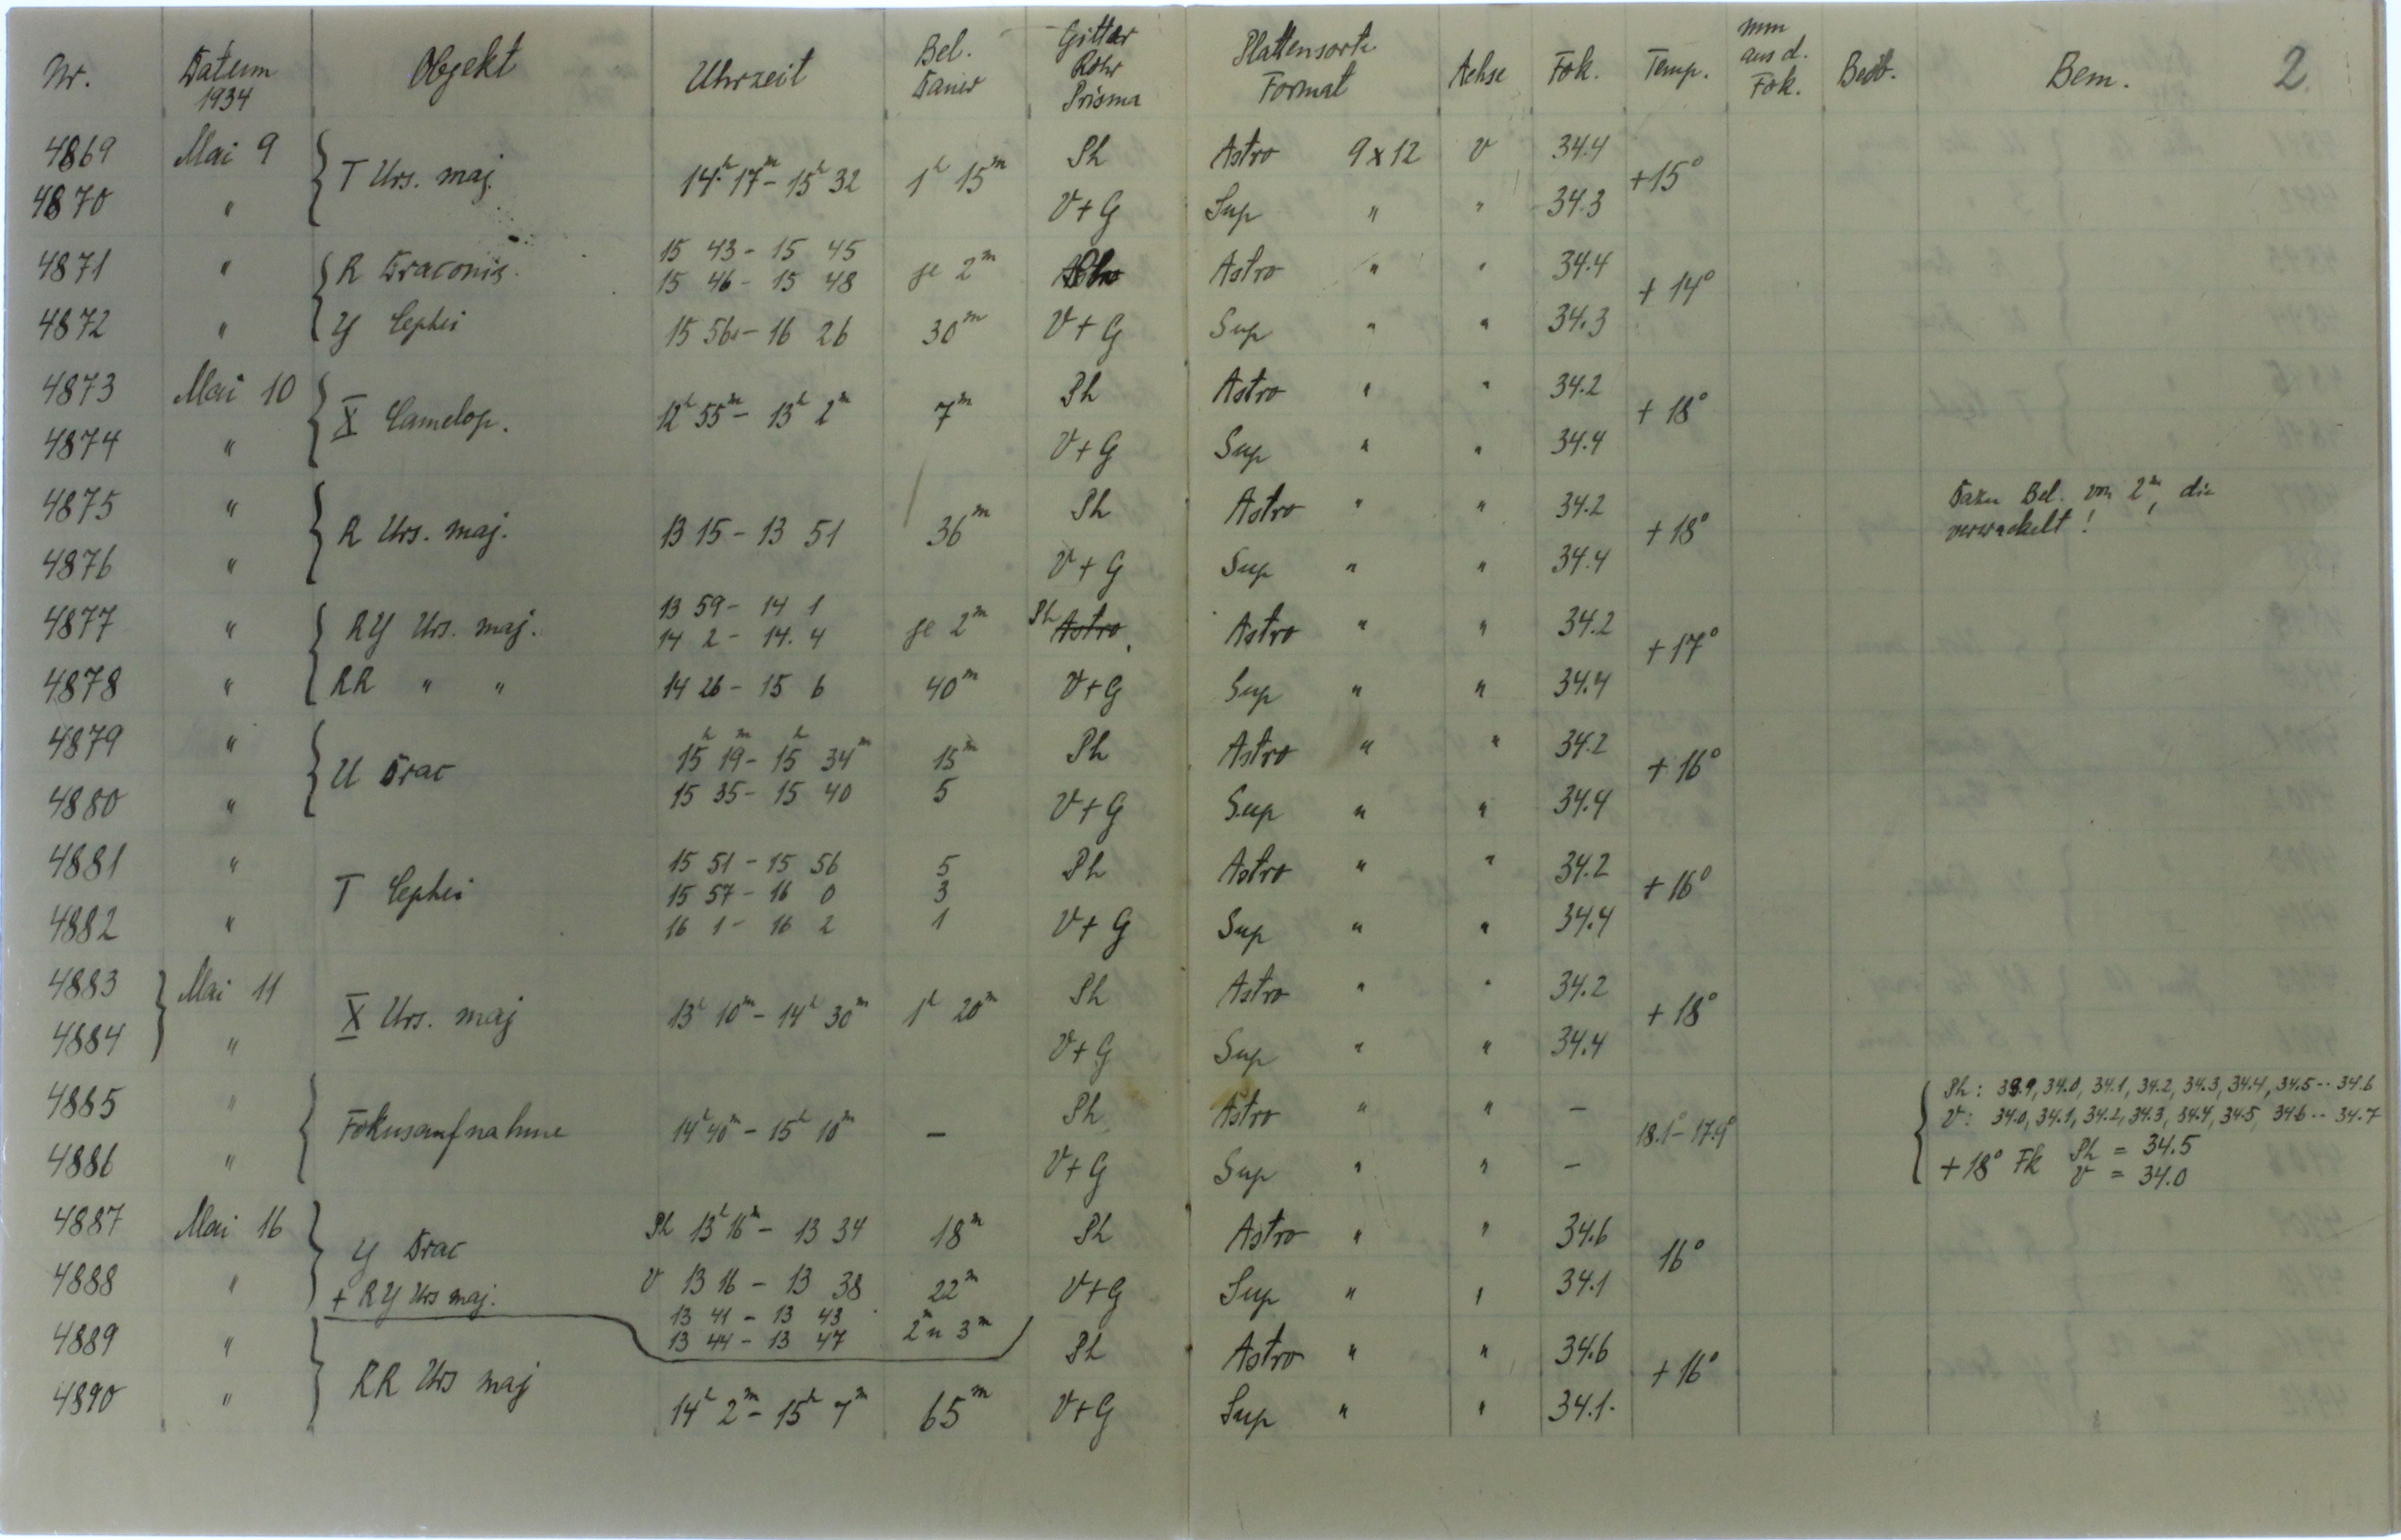 Nr. Datum 1934 Objekt Uhrzeit Bel. Dauer Gitter Rohr Prisma Plattensorte Format Achse Fok. Temp. mm aus d. Fok. Beob. Bem. 2
4869 Mai 9 { T Urs. maj. 14h 17m - 15h 32 1h 15m Ph Astro 9x12 v 34.4 +15°
4870 " V+G Sup " " 34.3
4871 " { R Draconis. 15 43 - 15 45 je 2m Astro " " 34.4 + 14°
15 46 - 15 48
4872 " Y Cephei 15 56 - 16 26 30m V+G Sup " " 34.3
4873 Mai 10 { X Camelop. 12h 55m - 13h 2m 7m Ph Astro " " 34.2 + 18°
4874 " V+G Sup " " 34.4
4875 " { R Urs. maj. 13 15 - 13 51 36m Ph Astro " " 34.2 + 18° Dazu Bel. von 2m, die
verwackelt!
4876 " V+G Sup " " 34.4
4877 " { RY Urs. maj. 13 59 - 14 1 je 2m Ph Astro Astro " " 34.2 +17°
14 2 - 14. 4
4878 " RR " " 14 26 - 15 6 40m V+G Sup " " 34.4
4879 " { U Drac 15h 19m - 15h 34m 15m Ph Astro " " 34.2 + 16°
4880 " 15 35 - 15 40 5 V+G Sup " " 34.4
4881 " T Cephei 15 51 - 15 56 5 Ph Astro " " 34.2 + 16°
15 57 - 16 0 3
4882 " 16 1 - 16 2 1 V+G Sup " " 34.4
4883 } Mai 11 X Urs. maj 13h 10m - 14h 30m 1h 20m Ph Astro " " 34.2 + 18°
4884 " V+G Sup " " 34.4
4885 " { Fokusaufnahme 14h 40m - 15h 10m – Ph Astro " " – 18.1° - 17.9° { Ph: 33.9, 34.0, 34.1, 34.2, 34.3, 34.4, 34.5 -- 34.6
V: 34.0, 34.1, 34.2, 34.3, 34.4, 34.5, 34.6 -- 34.7
4886 " V+G Sup " " – +18° Fk Ph = 34.5
V = 34.0
4887 Mai 16 } Y Drac Ph 13h 16m - 13 34 18m Ph Astro " " 34.6 16°
4888 " + RY Urs maj. V 13 16 - 13 38 22m V+G Sup " " 34.1
13 41 - 13 43 2m u 3m
13 44 - 13 47
4889 " } RR Urs maj Ph Astro " " 34.6 + 16°
4890 " 14h 2m - 15h 7m 65m V+G Sup " " 34.1.